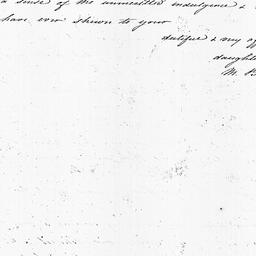 a sense of the unmerited indulgence &
have ever shewn to your
dutiful & my
daughte
M. B